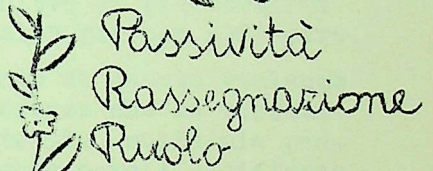 Passività
Rassegnazione
Ruolo